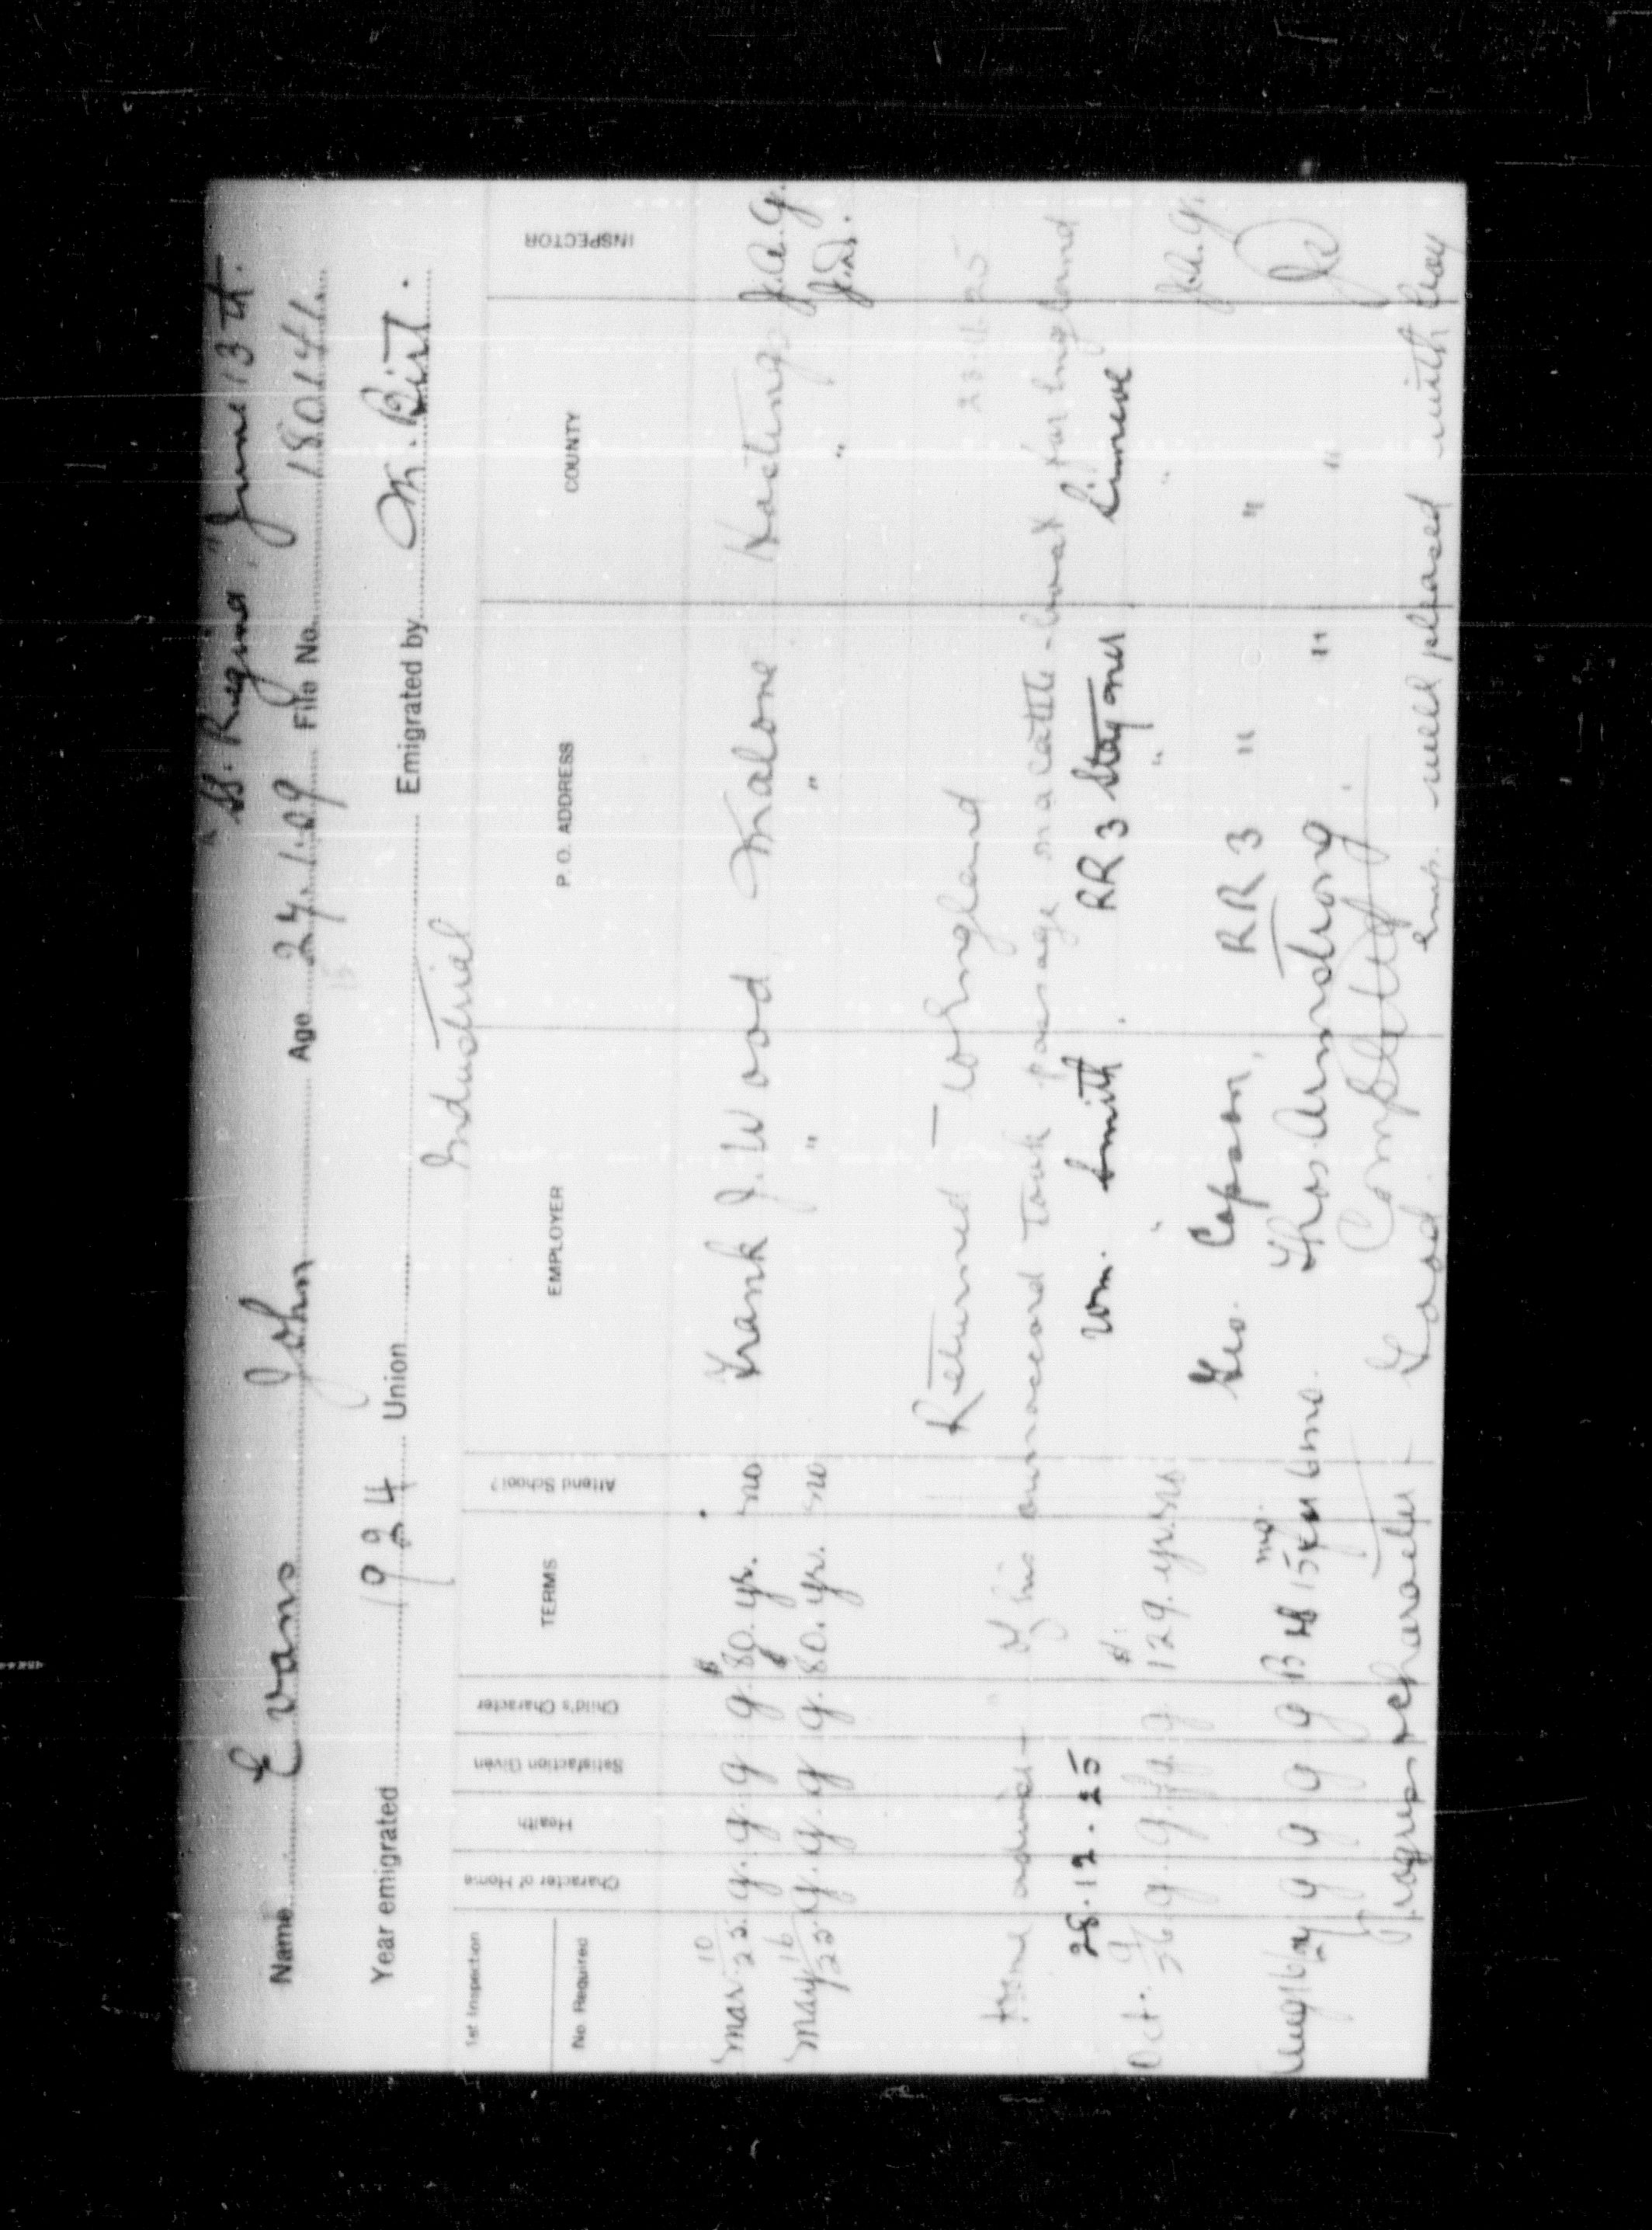 "SS. Regina" June 13th.
Name Evans John Age 24.1.09 File No. 180141
15
Year emigrated 1924 Union Emigrated by M. Birt.
Industrial
1st Inspection
No. Required
Character of Home
Health
Satisfaction Given
Child's Character
TERMS
Attend School?
EMPLOYER
P. O. ADDRESS
COUNTY
INSPECTOR
Mar. 10/25. g. g. g g. $80. yr. no Frank J. Wood Malone Hastings J.A.G.
May 16/25. g. g. g g. $80. yr. no " " "
Returned to England
Home advised of his own accord took passage on a cattle-boat for England
28.12.25 Wm. Smith RR 3 Stayner Simcoe
Oct. 9/26 g. g. g $129. yr. no " " " J.A.G.
Geo. Capson, RR 3 " "
Aug 16/27 g g g g B 15 6 mo. Thos Armstrong " "
Completed
Progress & character good. emp. well pleased with boy